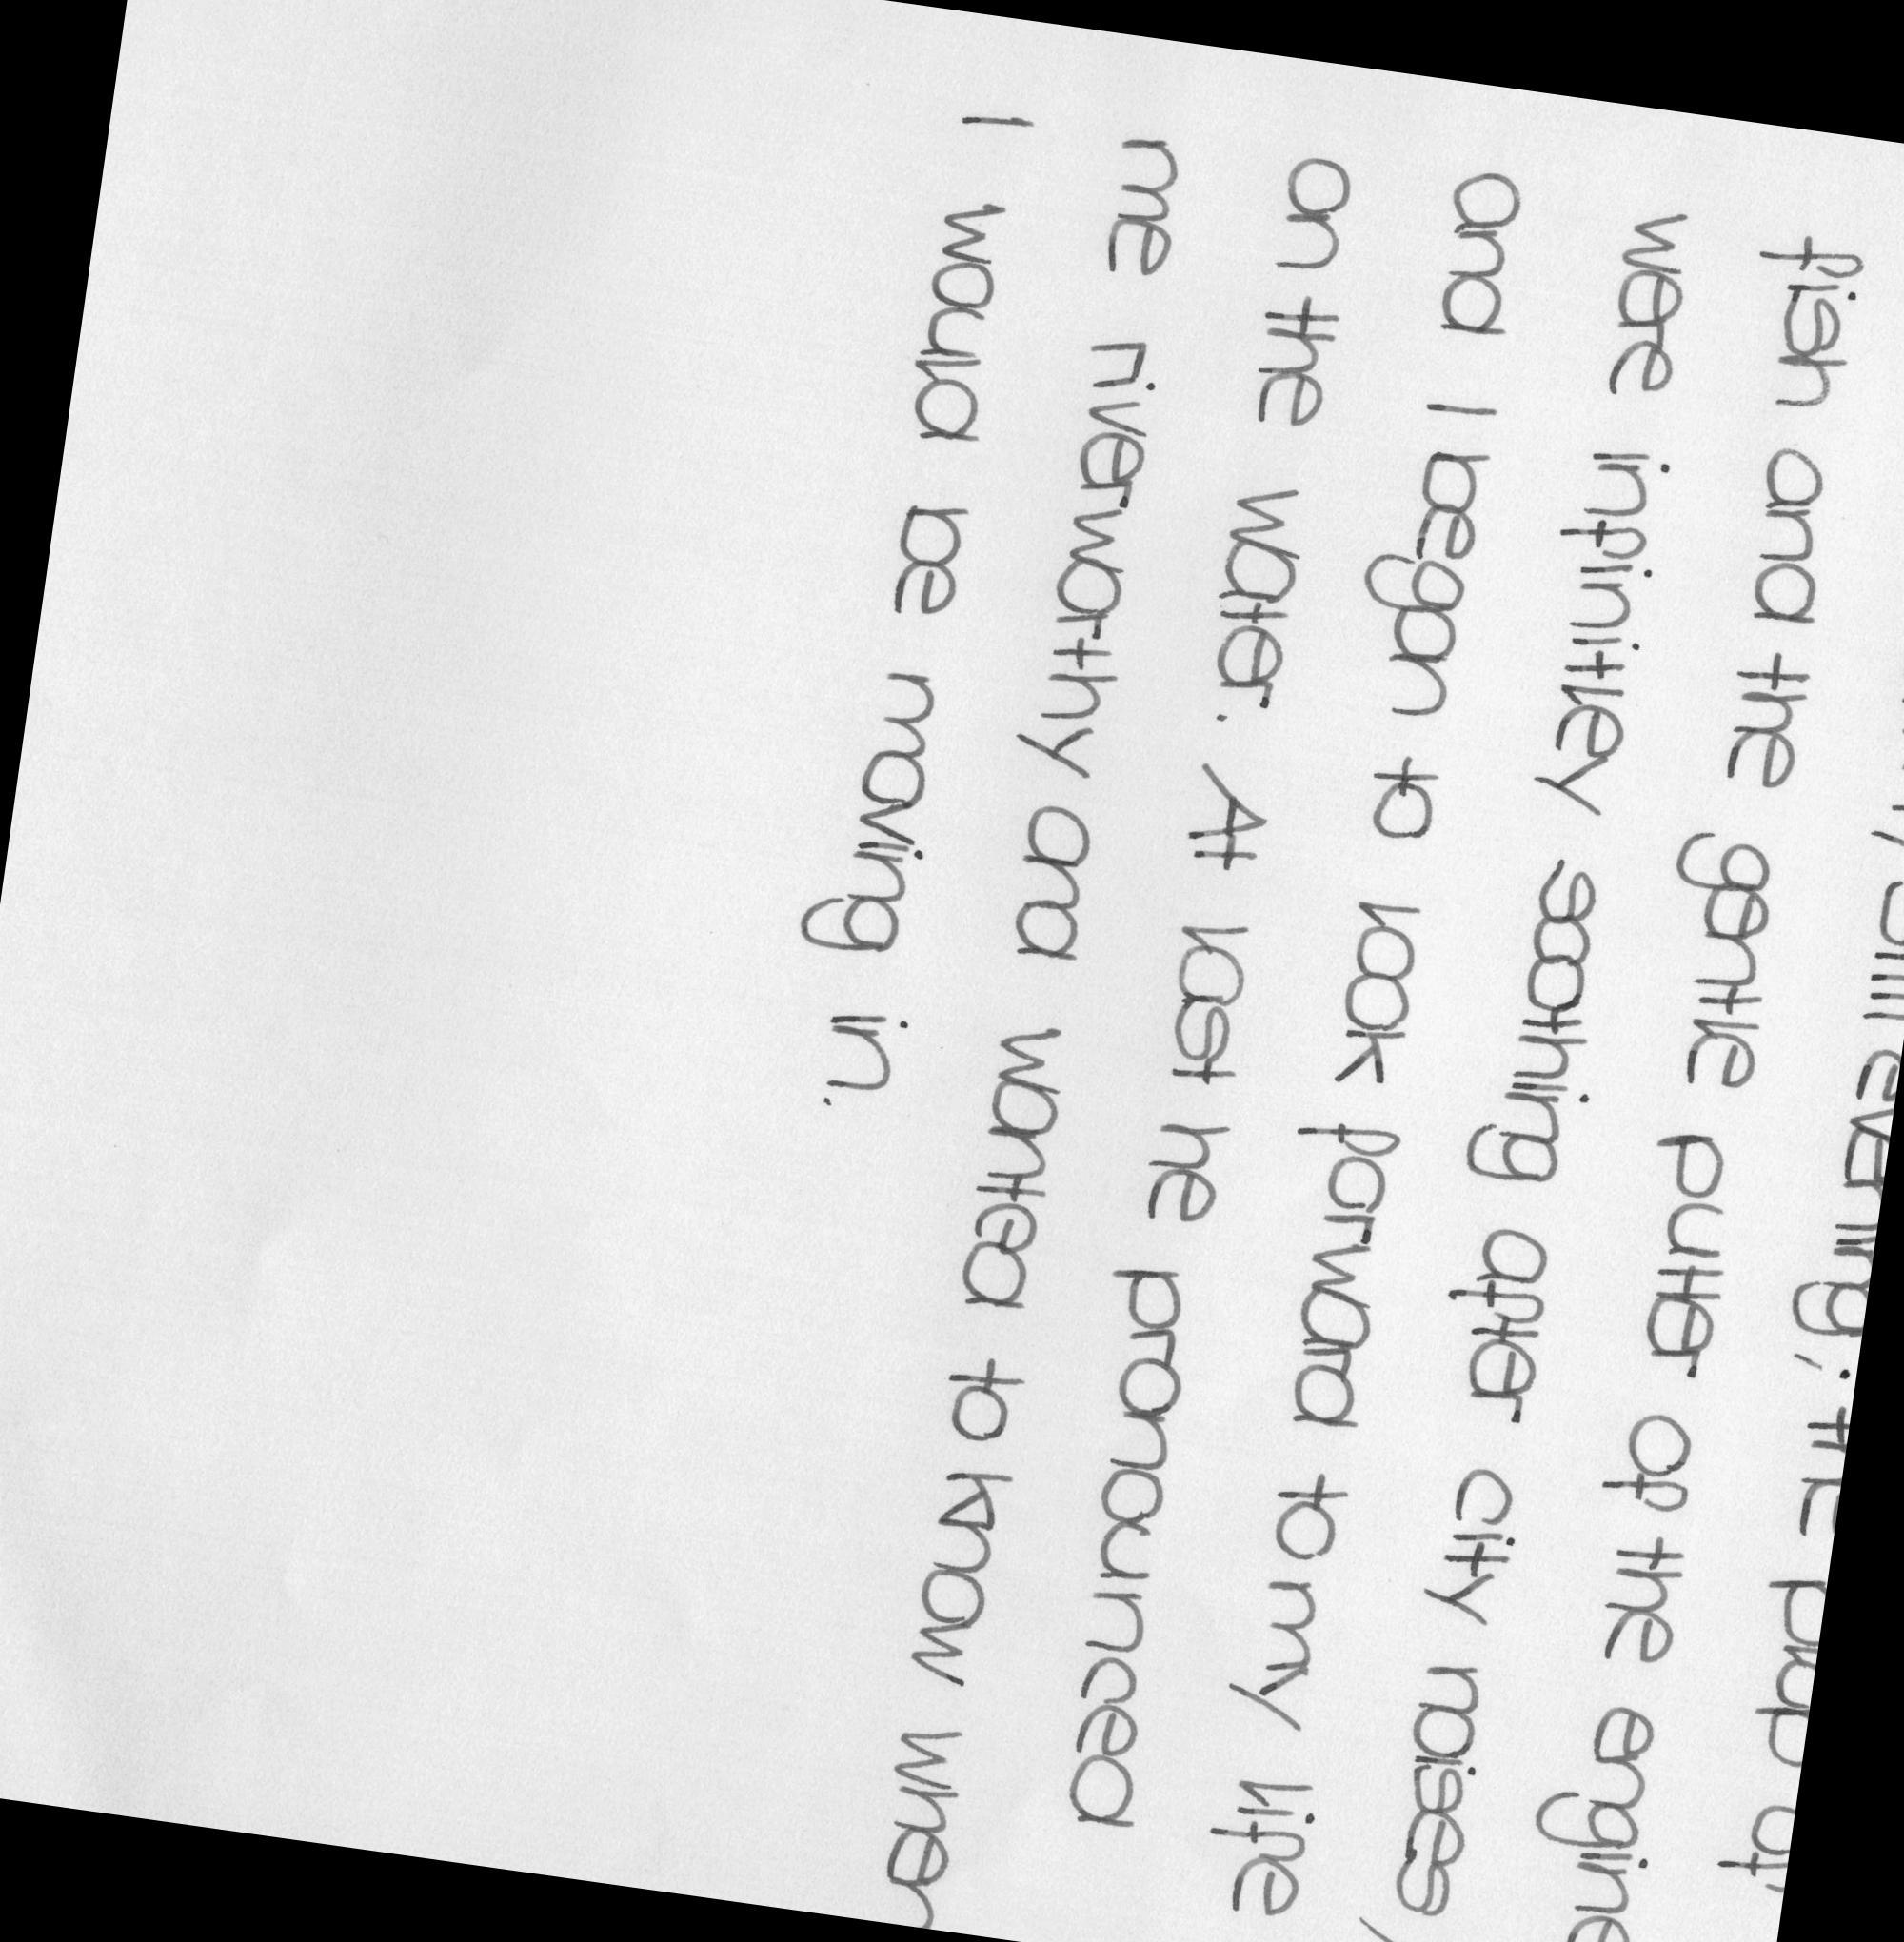 still evening; the plup of
fish and the gentle putter of the engine
were infinitley soothing after city noises,
and I began to look forward to my life
on the water. At last he pronounced
me riverworthy and wanted to know when
I would be moving in.